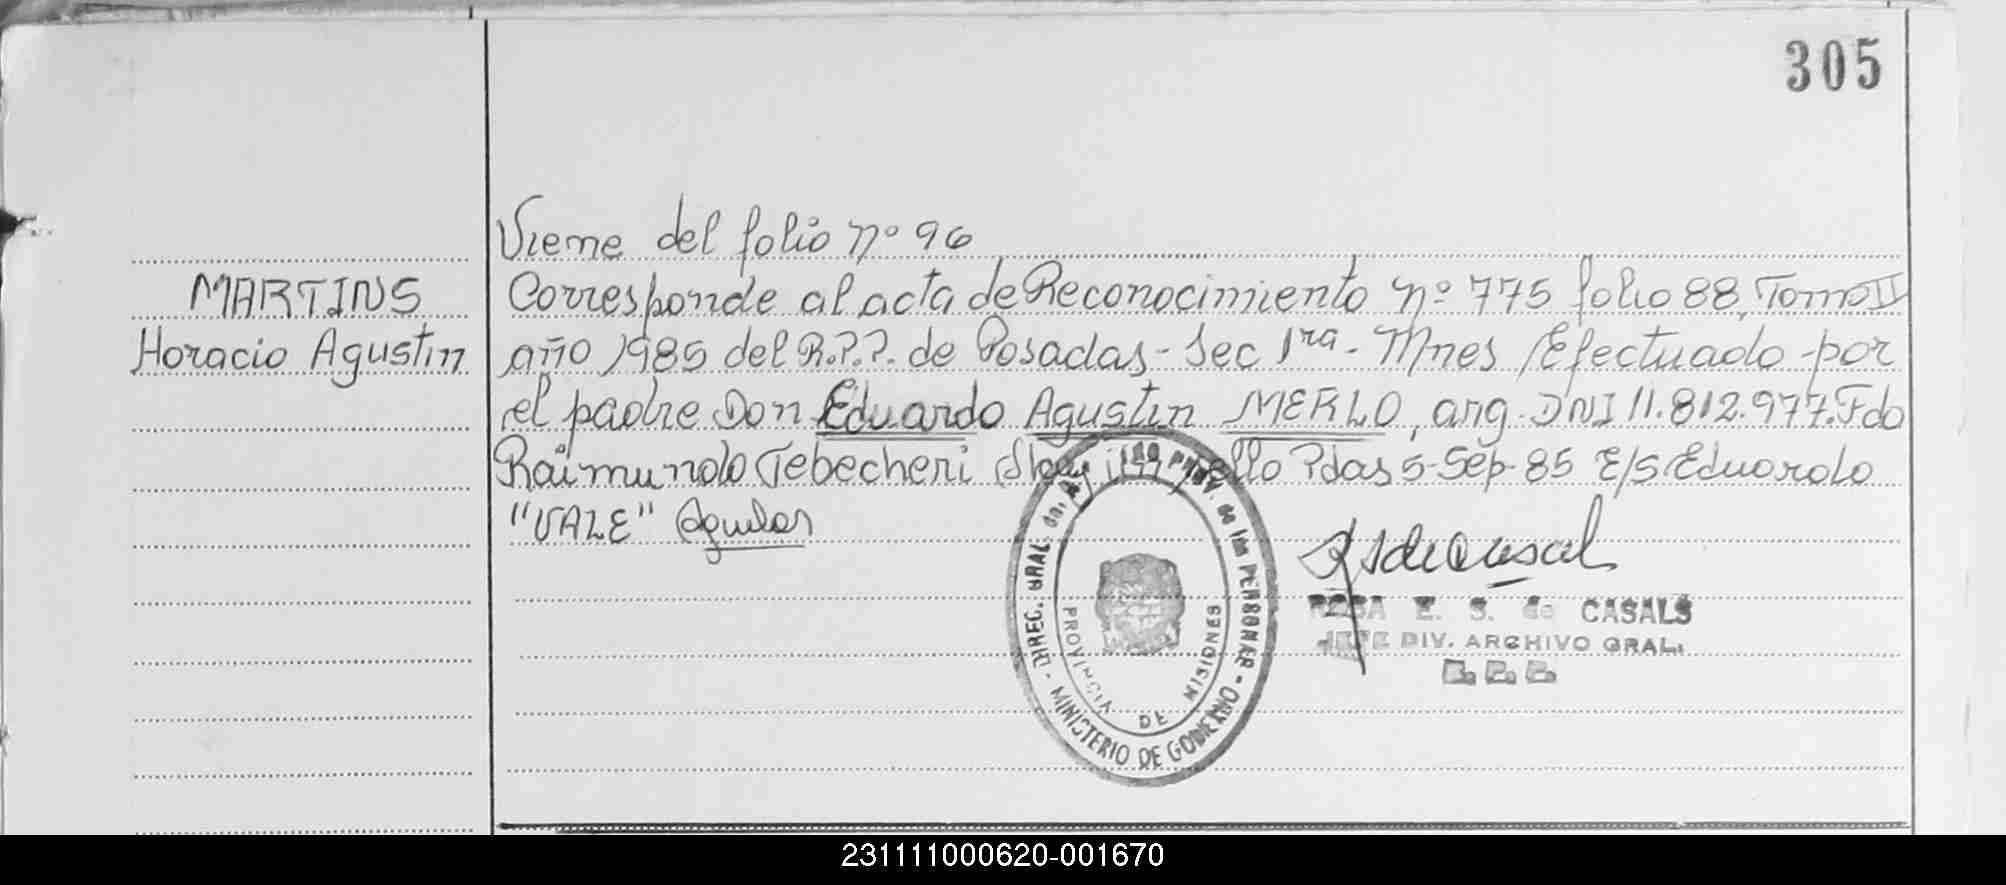 305
Viene del folio nº 96
MARTINS
Horacio Agustin
Corresponde al acta de Reconocimiento nº 775 folio 88, Tomo II
año 1985 del R.P.P. de Posadas - Sec 1ra - Mnes / Efectuado por
el padre Don Eduardo Agustin MERLO, arg. DNI 11.812.977. Fdo
Raimundo Tebecheri Pdas 5-Sep-85 E/S Eduardo
"VALE" Aguilar
DIREC. GRAL. de las PERSONAS - MINISTERIO DE GOBIERNO -
PROVINCIA DE MISIONES
ROSA E. S. de CASALS
JEFE DIV. ARCHIVO GRAL.
231111000620-001670